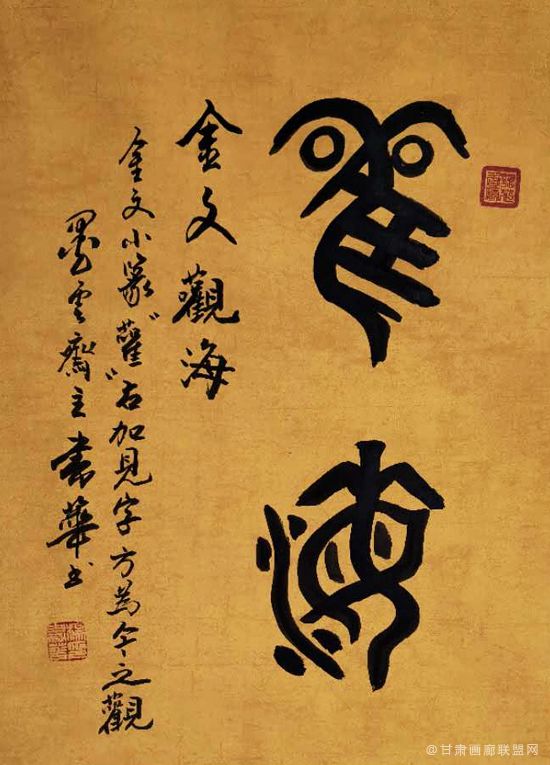 雚海
金文觀海
金文小篆“雚”右加見字方為今之觀
墨雲齋主華书
@甘肃画廊联盟网